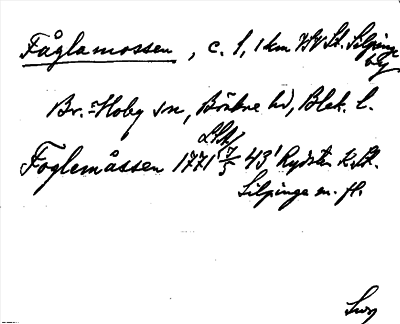 Fåglamossen, c. 1,1 km VSV St. Silpinge
by
Br.-Hoby sn, Bräkne hd, Blek. l.
LSA
Foglemåssen 1771 7/5 43' Rydstn t. St.
Silpinge m. fl.